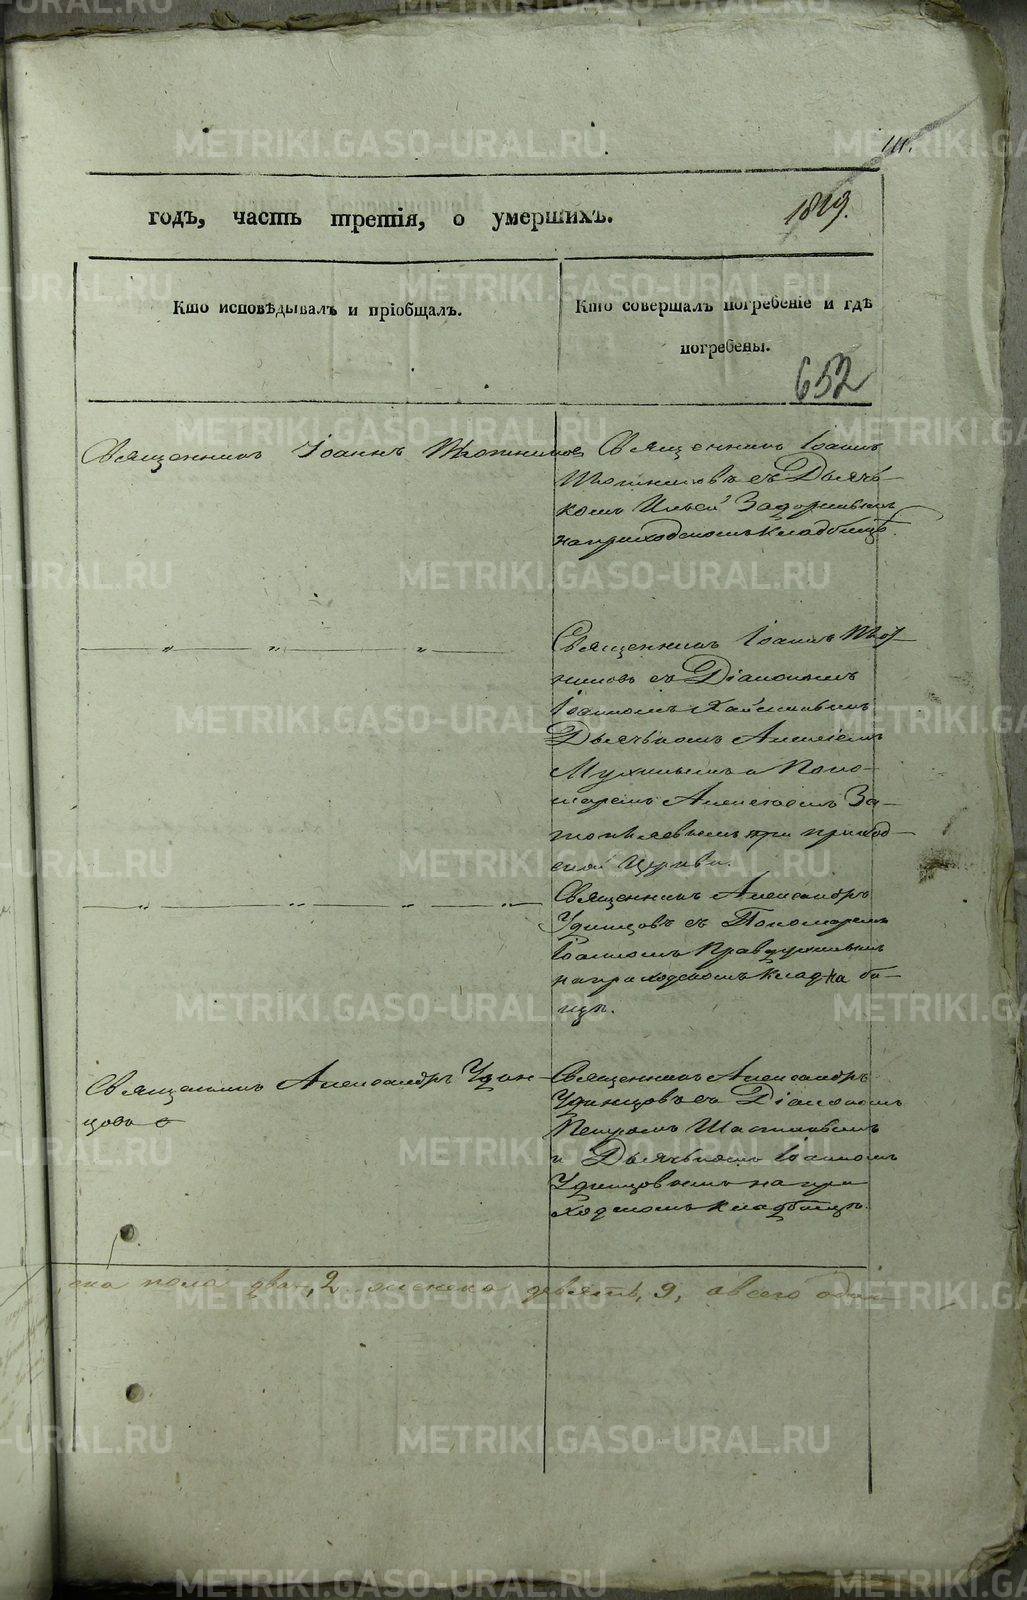 111.
годъ, часть третія, о умершихъ.
1819.
Кто исповѣдывалъ и пріобщалъ.
Кто совершалъ погребеніе и гдѣ
погребены.
652
Священникъ Іоаннъ
Священникъ Іоаннъ
съ Дьячь-
комъ Ильей Задоринымъ
на приходскомъ кладбищѣ.
Священникъ Іоаннъ
съ Діакономъ
Іоанномъ
Дьячькомъ
и Поно-
маремъ Алексѣемъ За-
при приход-
ской Церкви.
Священникъ Александръ
Удинцовъ съ Пономаремъ
Іоанномъ
на приходскомъ клад ба-
ищѣ.
Священникъ Александръ Удин-
цовъ
Священникъ Александръ
Удинцовъ съ Діакономъ
Петромъ
и Дьячькомъ Іоанномъ
Удинцовымъ на при
ходскомъ кладбищѣ.
ска пола два, 2 женска девять, 9, а всего один
METRIKI.GASO-URAL.RU